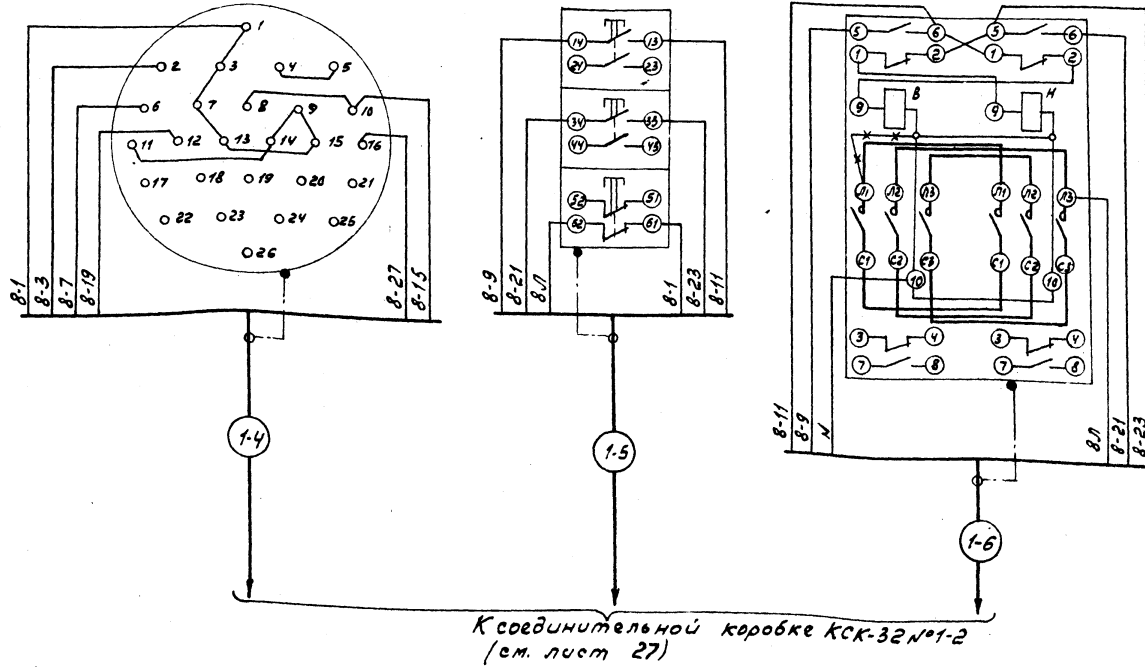 1
2 3 4 5
6 7 8 9 10
11 12 13 14 15 16
17 18 19 20 21
22 23 24 25
26
8-1 8-3 8-7 8-19 8-27 8-15
1-4
14 13
21 23
34 33
44 43
52 51
62 61
8-9 8-21 8Л 8-1 8-23 8-11
1-5
5 6 5 6
1 2 1 2
В Н
9 9
Л1 Л2 Л3 Л1 Л2 Л3
С1 С2 С3 С1 С2 С3
10 10
3 4 3 4
7 8 7 8
8-11 8-9 N 8Л 8-21 8-23
1-6
К соединительной коробке КСК-32 №1-2
(см. лист 27)